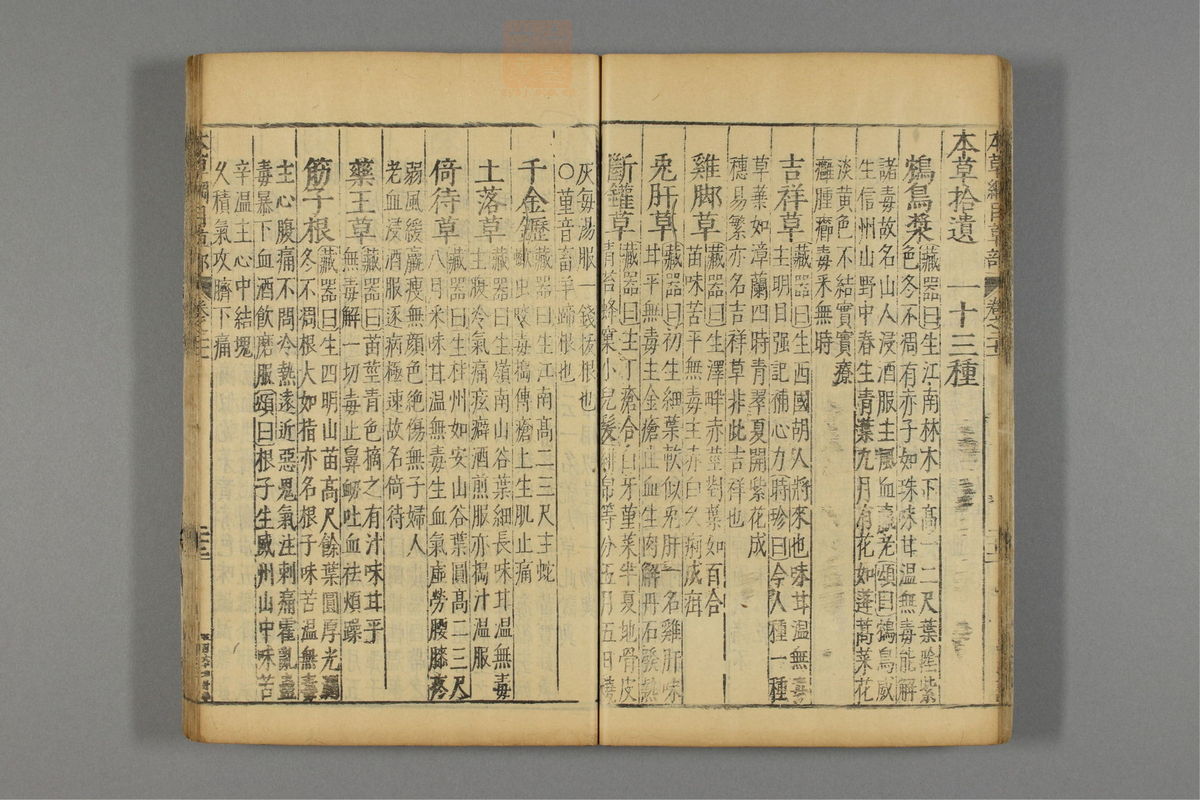 本草綱目草部 卷之二十一
本草拾遺 一十三種
鴆鳥漿藏器曰生江南林木下高一二尺葉陰紫
色冬不凋有赤子如珠味甘温無毒能解
諸毒故名山人浸酒服主風血羸老頌曰鴆鳥威
生信州山野中春生青葉九月有花如蓬蒿菜花
淡黄色不結實療
癰腫癤毒采無時
吉祥草藏器曰生西國胡人將來也味甘温無毒
主明目强記補心力時珍曰今人種一種
草葉如漳蘭四時青翠夏開紫花成
穗易繁亦名吉祥草非此吉祥也
雞脚草藏器曰生澤畔赤莖對葉如百合
苗味苦平無毒主赤白久痢成疳
兎肝草藏器曰初生細葉軟似兎肝一名雞肝味
甘平無毒主金瘡止血生肉解丹石發熱
斷罐草藏器曰主丁瘡合白牙堇菜半夏地骨皮
青苔蜂窠小兒髮緋帛等分五月五日燒
灰每湯服一錢拔根也
〇堇音畜羊蹄根也
千金䥶藏器曰生江南高二三尺主蛇
蠍虫咬毒搗傅瘡上生肌止痛
土落草藏器曰生嶺南山谷葉細長味甘温無毒
主腹冷氣痛痃癖酒煎服亦搗汁温服
倚待草藏器曰生桂州如安山谷葉圓高二三尺
八月采味甘温無毒主血氣虚勞腰膝疼
弱風緩羸瘦無顔色絶傷無子婦人
老血浸酒服逐病極速故名倚待
藥王草藏器曰苗莖青色摘之有汁味甘平
無毒解一切毒止鼻衂吐血祛煩躁
筋子根藏器曰生四明山苗高尺餘葉圓厚光潤
冬不凋根大如指亦名根子味苦温無毒
主心腹痛不問冷熱遠近惡鬼氣注刺痛霍亂蠱
毒暴下血酒飲磨服頌曰根子生威州山中味苦
辛温主心中結塊
久積氣攻臍下痛
本草綱目草部 卷之二十一